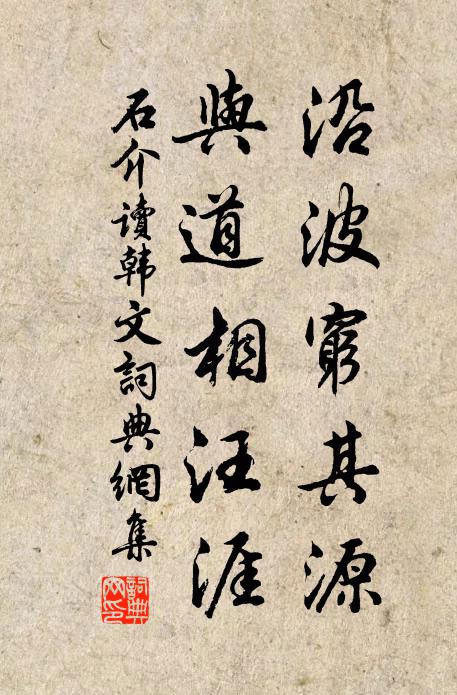 沿波窮其源
與道相汪涯
石介讀韩文詞典網集
詞典网印